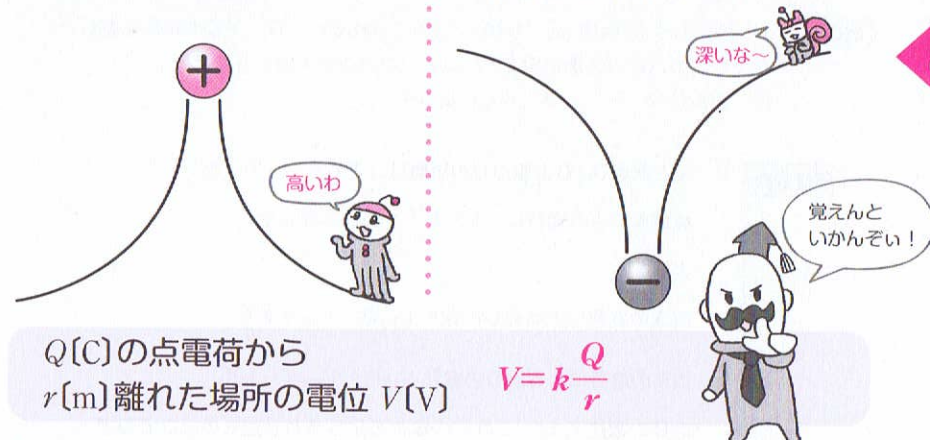 +
高いわ
深いな〜
−
覚えんと
いかんぞぃ！
Q〔C〕の点電荷から
r〔m〕離れた場所の電位 V〔V〕
V=k Q/r